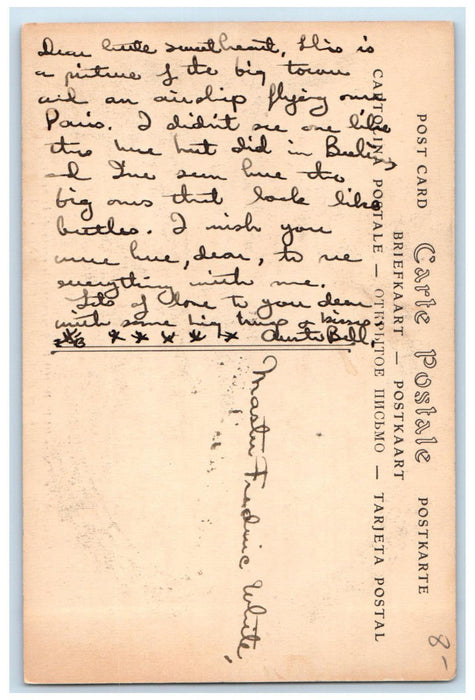 Dear little sweetheart, this is
a picture of the big tower
and an airship flying over
Paris. I didn't see one like
this here but did in Berlin,
and I've seen here the
big ones that look like
beetles. I wish you
were here, dear, to see
everything with me.
Lots of love to you dear
with some big hugs & kisses,
Aunt Bell.
Master Frederic White,
CARTOLINA POSTALE — ОТКРЫТОЕ ПИСЬМО — TARJETA POSTAL
BRIEFKAART — POSTKAART
POST CARD Carte Postale POSTKARTE
8-